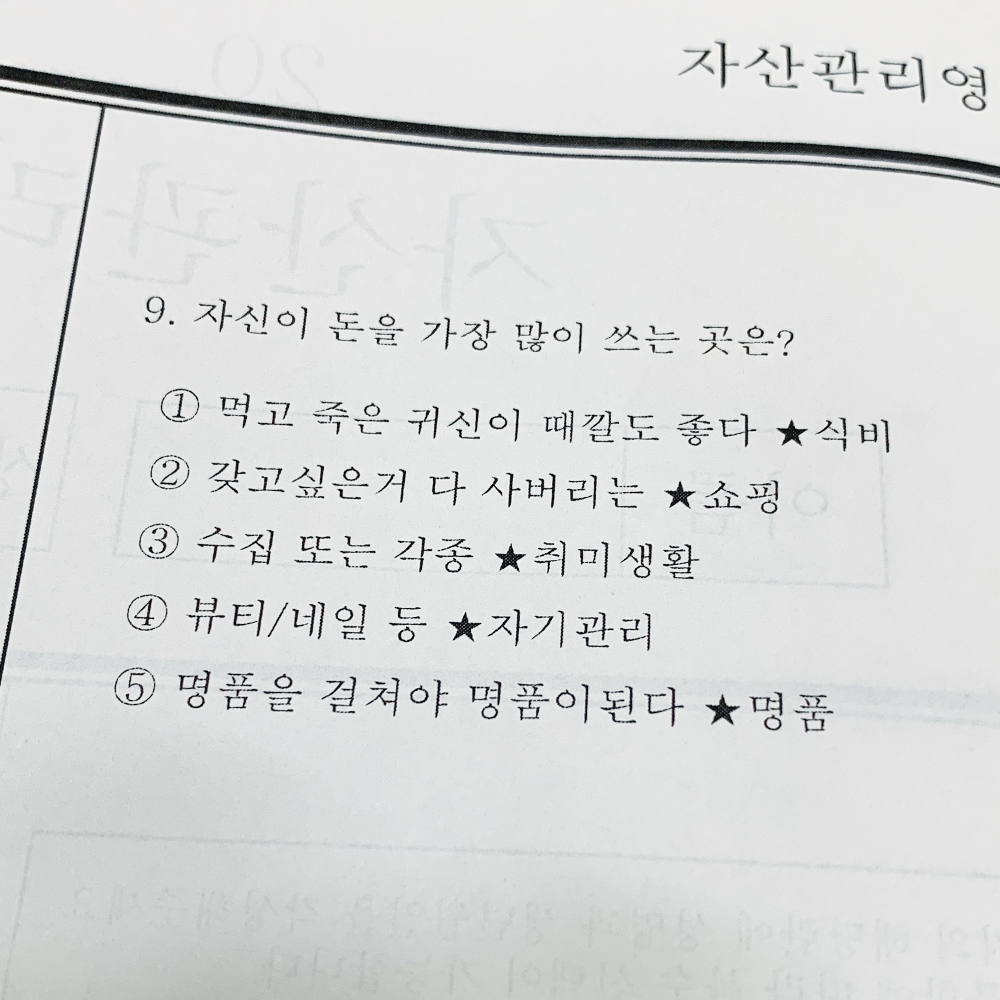 자산관리영
9. 자신이 돈을 가장 많이 쓰는 곳은?
① 먹고 죽은 귀신이 때깔도 좋다 ★식비
② 갖고싶은거 다 사버리는 ★쇼핑
③ 수집 또는 각종 ★취미생활
④ 뷰티/네일 등 ★자기관리
⑤ 명품을 걸쳐야 명품이된다 ★명품